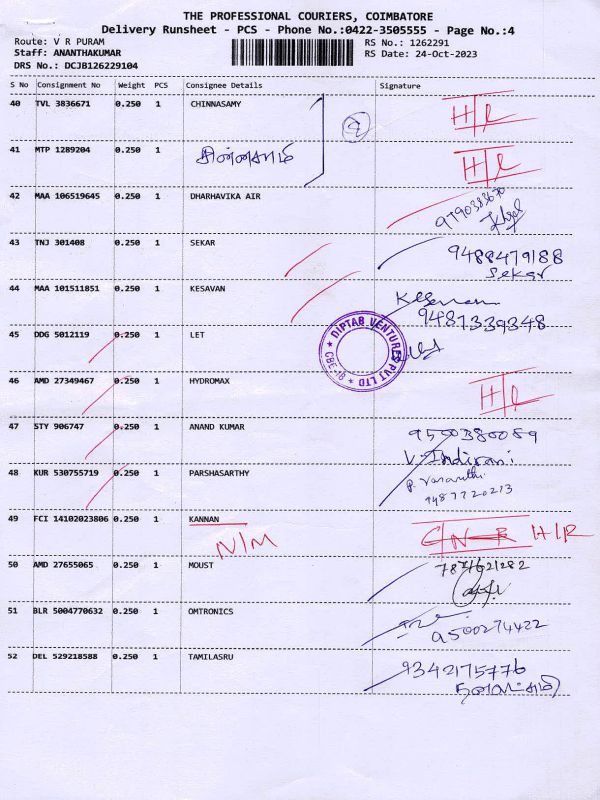 THE PROFESSIONAL COURIERS, COIMBATORE
Delivery Runsheet - PCS - Phone No.:0422-3505555 - Page No.:4
Route: V R PURAM RS No.: 1262291
Staff: ANANTHAKUMAR RS Date: 24-Oct-2023
DRS No.: DCJB126229104
S No Consignment No Weight PCS Consignee Details Signature
40 TVL 3836671 0.250 1 CHINNASAMY H/R
41 MTP 1289204 0.250 1 சின்னசாமி H/R
42 MAA 106519645 0.250 1 DHARHAVIKA AIR 9790383670
43 TNJ 301408 0.250 1 SEKAR 9488479188
Sekar
44 MAA 101511851 0.250 1 KESAVAN Kesavan
9487339348
45 DDG 5012119 0.250 1 LET
DIPTAB VENTURES PVT LTD
CBE-18
46 AMD 27349467 0.250 1 HYDROMAX H/R
47 STY 906747 0.250 1 ANAND KUMAR 9590380089
V. Indirani
48 KUR 530755719 0.250 1 PARSHASARTHY P. Vasanthi
9487720213
49 FCI 14102023806 0.250 1 KANNAN H/R
N/M
50 AMD 27655065 0.250 1 MOUST
51 BLR 5004770632 0.250 1 OMTRONICS 9500274422
52 DEL 529218588 0.250 1 TAMILASRU 9342175776